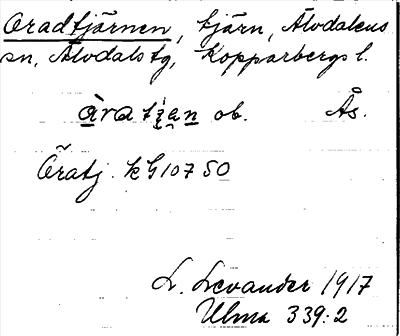 Oradtjärnen, tjärn, Älvdalens
sn, Älvdals tg, Kopparbergs l.
ob. Ås.
Öratj. kG10750
L. Levander 1917
Ulma 339:2